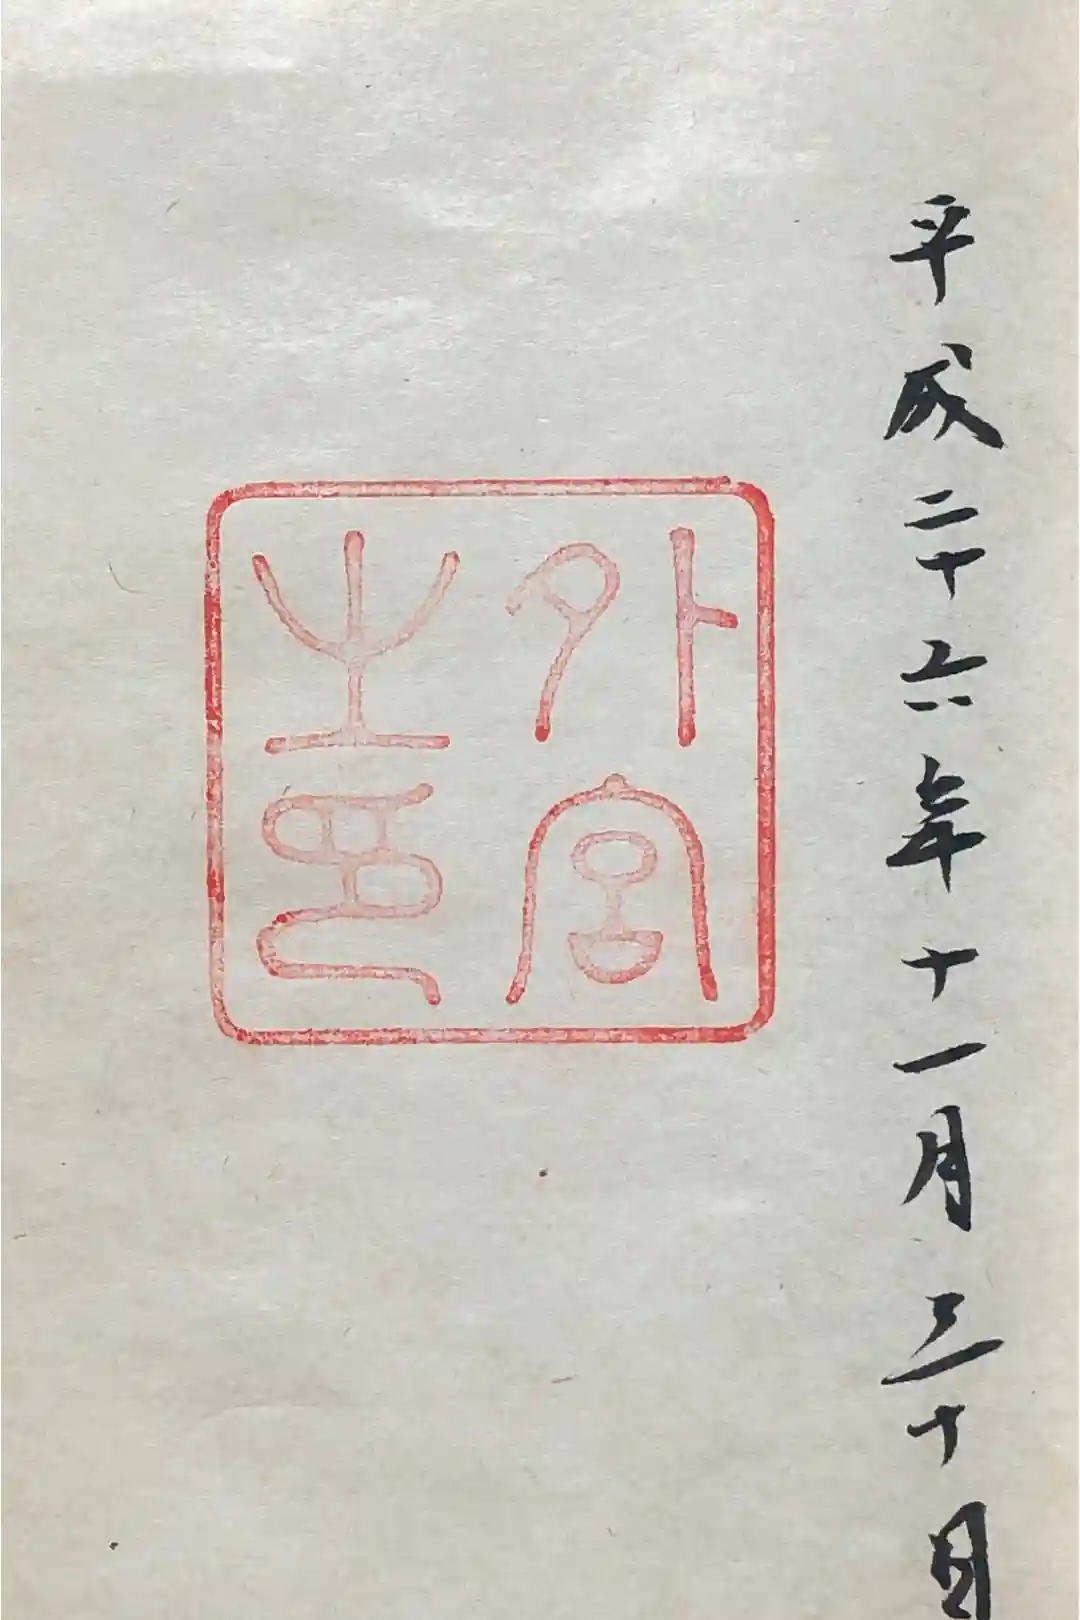 平成二十六年十一月三十日
外宮之印